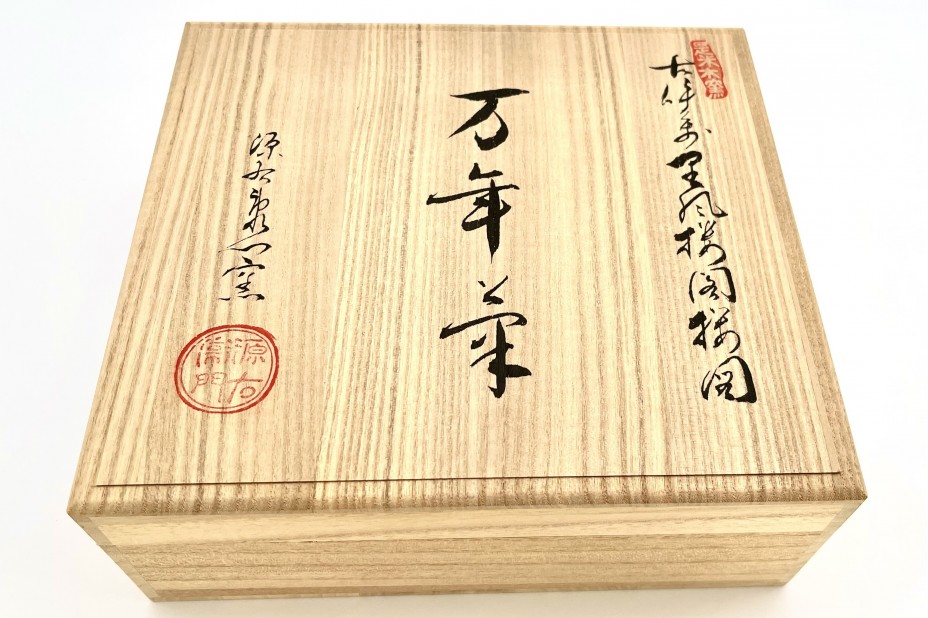 古伊万里風楼閣図
万年菊
源右衛門窯
源右衛門